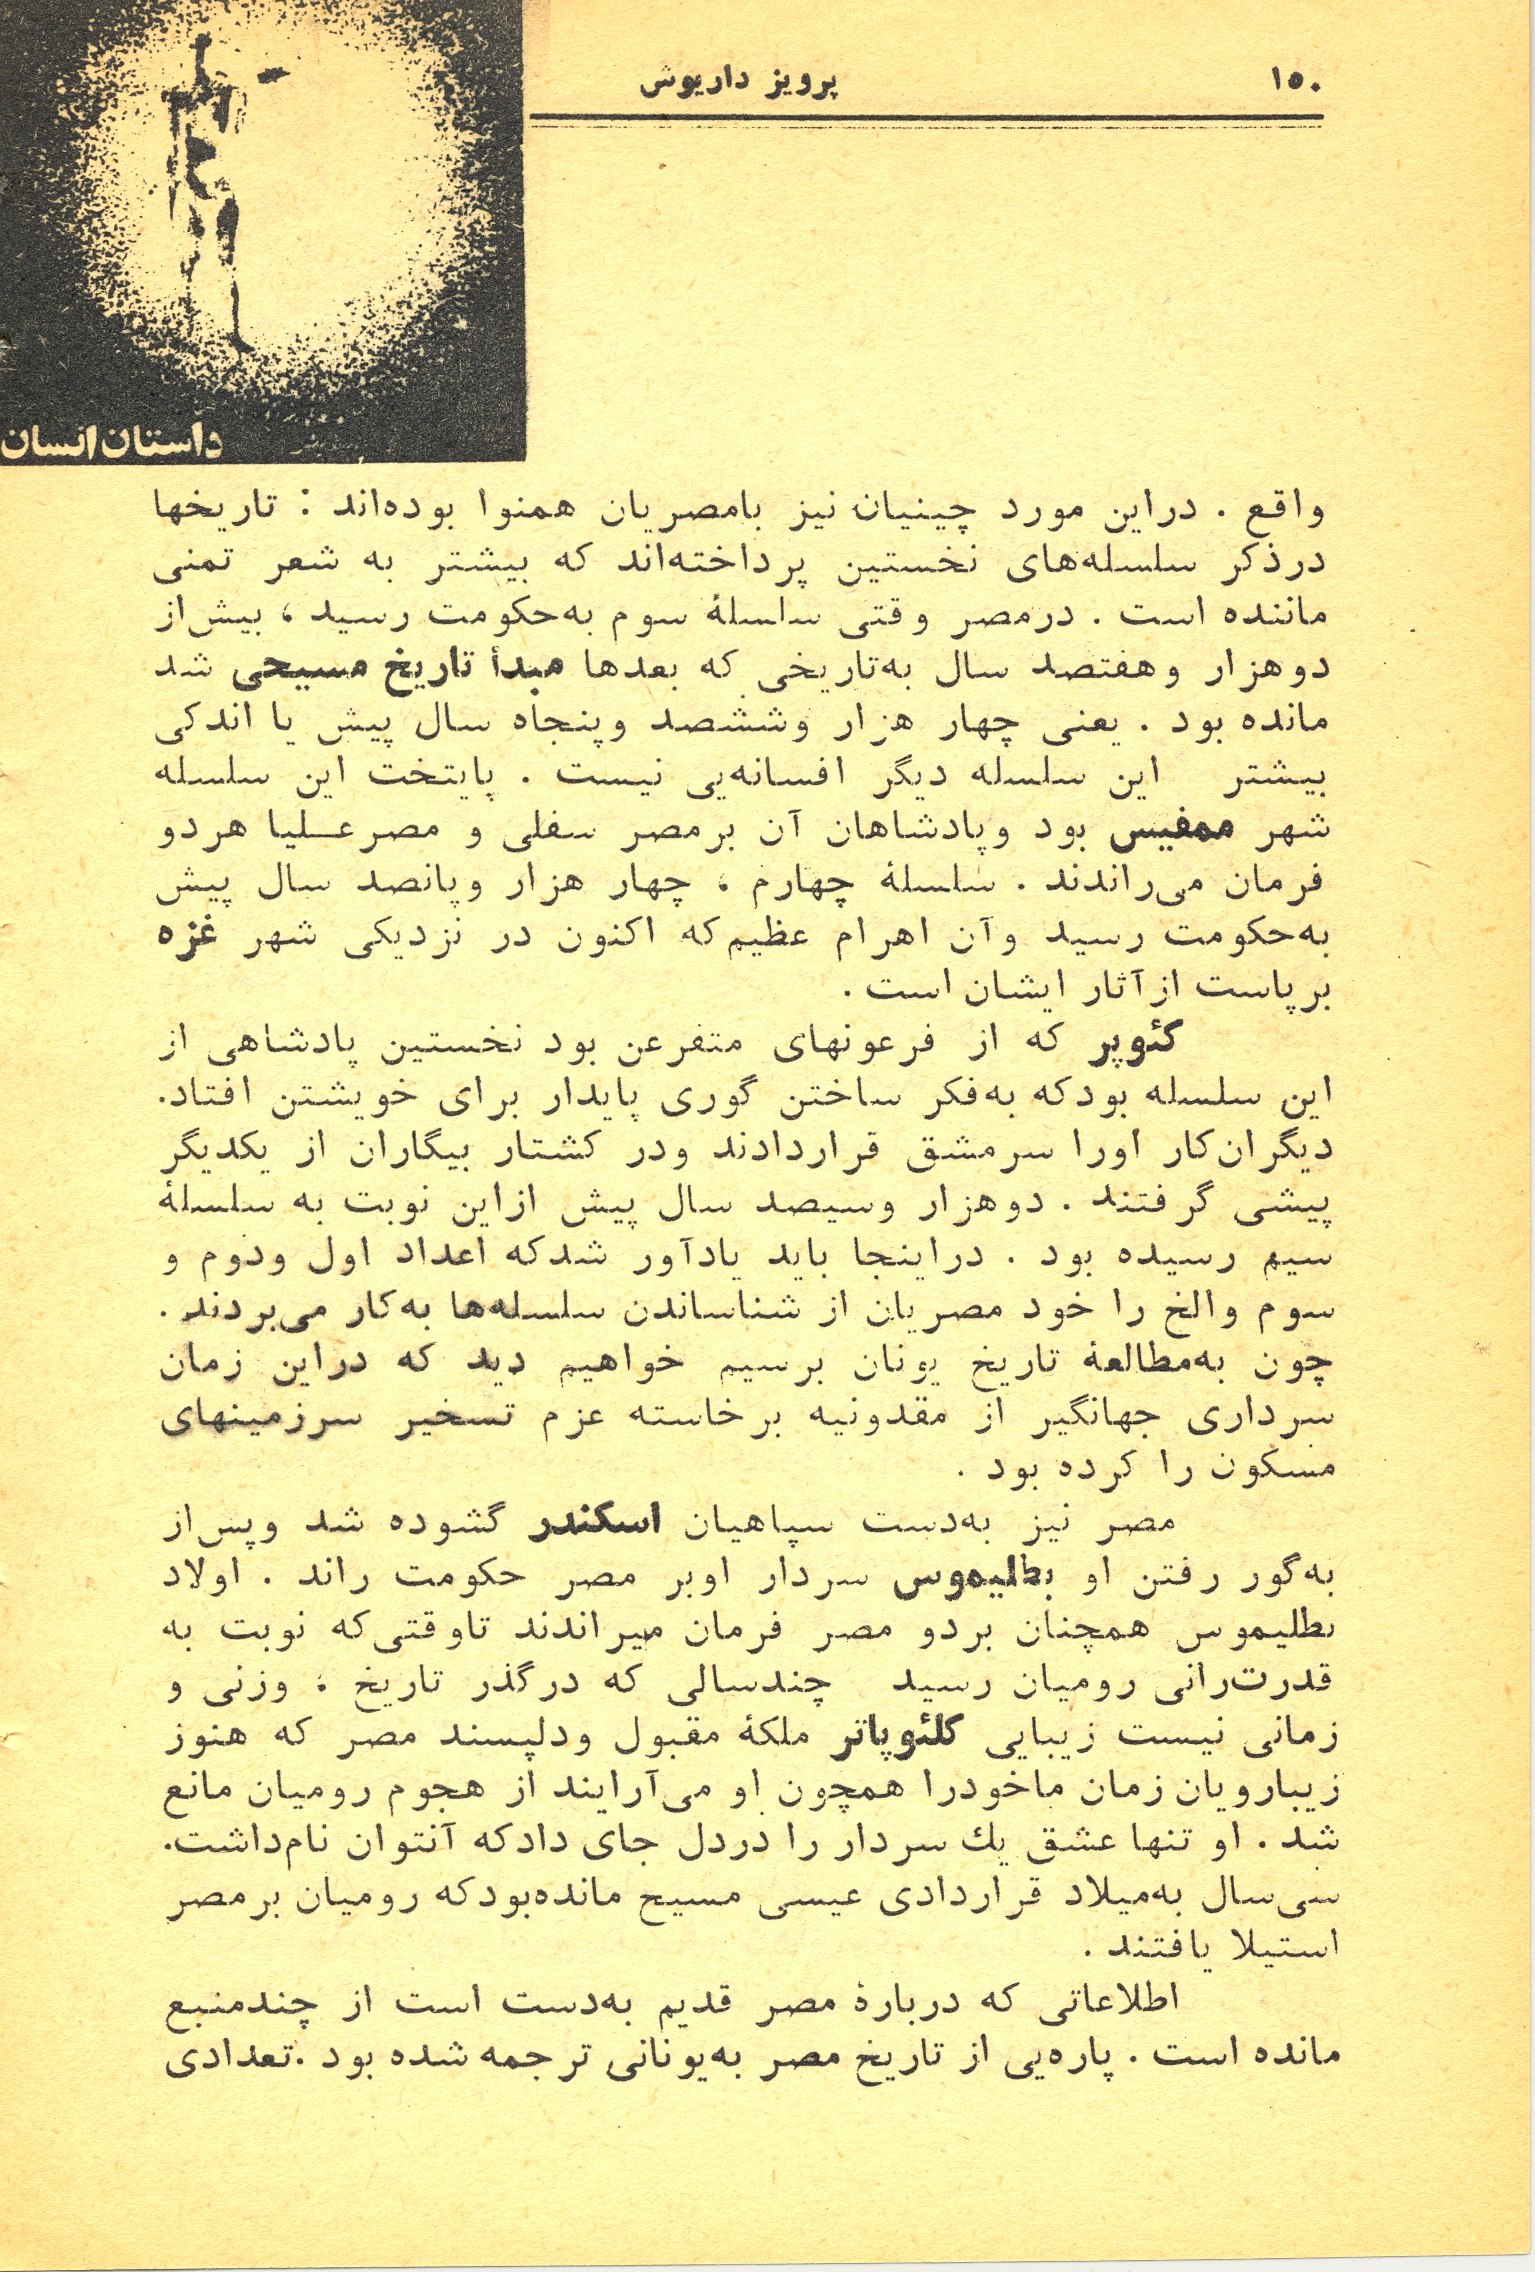 ۱۵۰
پرویز داریوش
داستان انسان
واقع . دراین مورد چینیان نیز بامصریان همنوا بوده‌اند : تاریخها
درذکر سلسله‌های نخستین پرداخته‌اند که بیشتر به شعر تمنی
ماننده است . درمصر وقتی سلسلهٔ سوم به‌حکومت رسید ، بیش‌از
دوهزار وهفتصد سال به‌تاریخی که بعدها مبدأ تاریخ مسیحی شد
مانده بود . یعنی چهار هزار وششصد وپنجاه سال پیش یا اندکی
بیشتر این سلسله دیگر افسانه‌یی نیست . پایتخت این سلسله
شهر ممفیس بود وپادشاهان آن برمصر سفلی و مصرعـلیا هردو
فرمان می‌راندند . سلسلهٔ چهارم ، چهار هزار وپانصد سال پیش
به‌حکومت رسید وآن اهرام عظیم‌که اکنون در نزدیکی شهر غزه
برپاست ازآثار ایشان است .
کئوپر که از فرعونهای متفرعن بود نخستین پادشاهی از
این سلسله بودکه به‌فکر ساختن گوری پایدار برای خویشتن افتاد.
دیگران‌کار اورا سرمشق قراردادند ودر کشتار بیگاران از یکدیگر
پیشی گرفتند . دوهزار وسیصد سال پیش ازاین نوبت به سلسلهٔ
سیم رسیده بود . دراینجا باید یادآور شدکه اعداد اول ودوم و
سوم والخ را خود مصریان از شناساندن سلسله‌ها به‌کار می‌بردند .
چون به‌مطالعهٔ تاریخ یونان برسیم خواهیم دید که دراین زمان
سرداری جهانگیر از مقدونیه برخاسته عزم تسخیر سرزمینهای
مسکون را کرده بود .
مصر نیز به‌دست سپاهیان اسکندر گشوده شد وپس‌از
به‌گور رفتن او بطلیموس سردار اوبر مصر حکومت راند . اولاد
بطلیموس همچنان بردو مصر فرمان میراندند تاوقتی‌که نوبت به
قدرت‌رانی رومیان رسید چندسالی که درگذر تاریخ ، وزنی و
زمانی نیست زیبایی کلئوپاتر ملکهٔ مقبول ودلپسند مصر که هنوز
زیبارویان زمان ماخودرا همچون او می‌آرایند از هجوم رومیان مانع
شد . او تنها عشق یك سردار را دردل جای دادکه آنتوان نام‌داشت.
سی‌سال به‌میلاد قراردادی عیسی مسیح مانده‌بودکه رومیان برمصر
استیلا یافتند .
اطلاعاتی که دربارهٔ مصر قدیم به‌دست است از چندمنبع
مانده است . پاره‌یی از تاریخ مصر به‌یونانی ترجمه شده بود .تعدادی